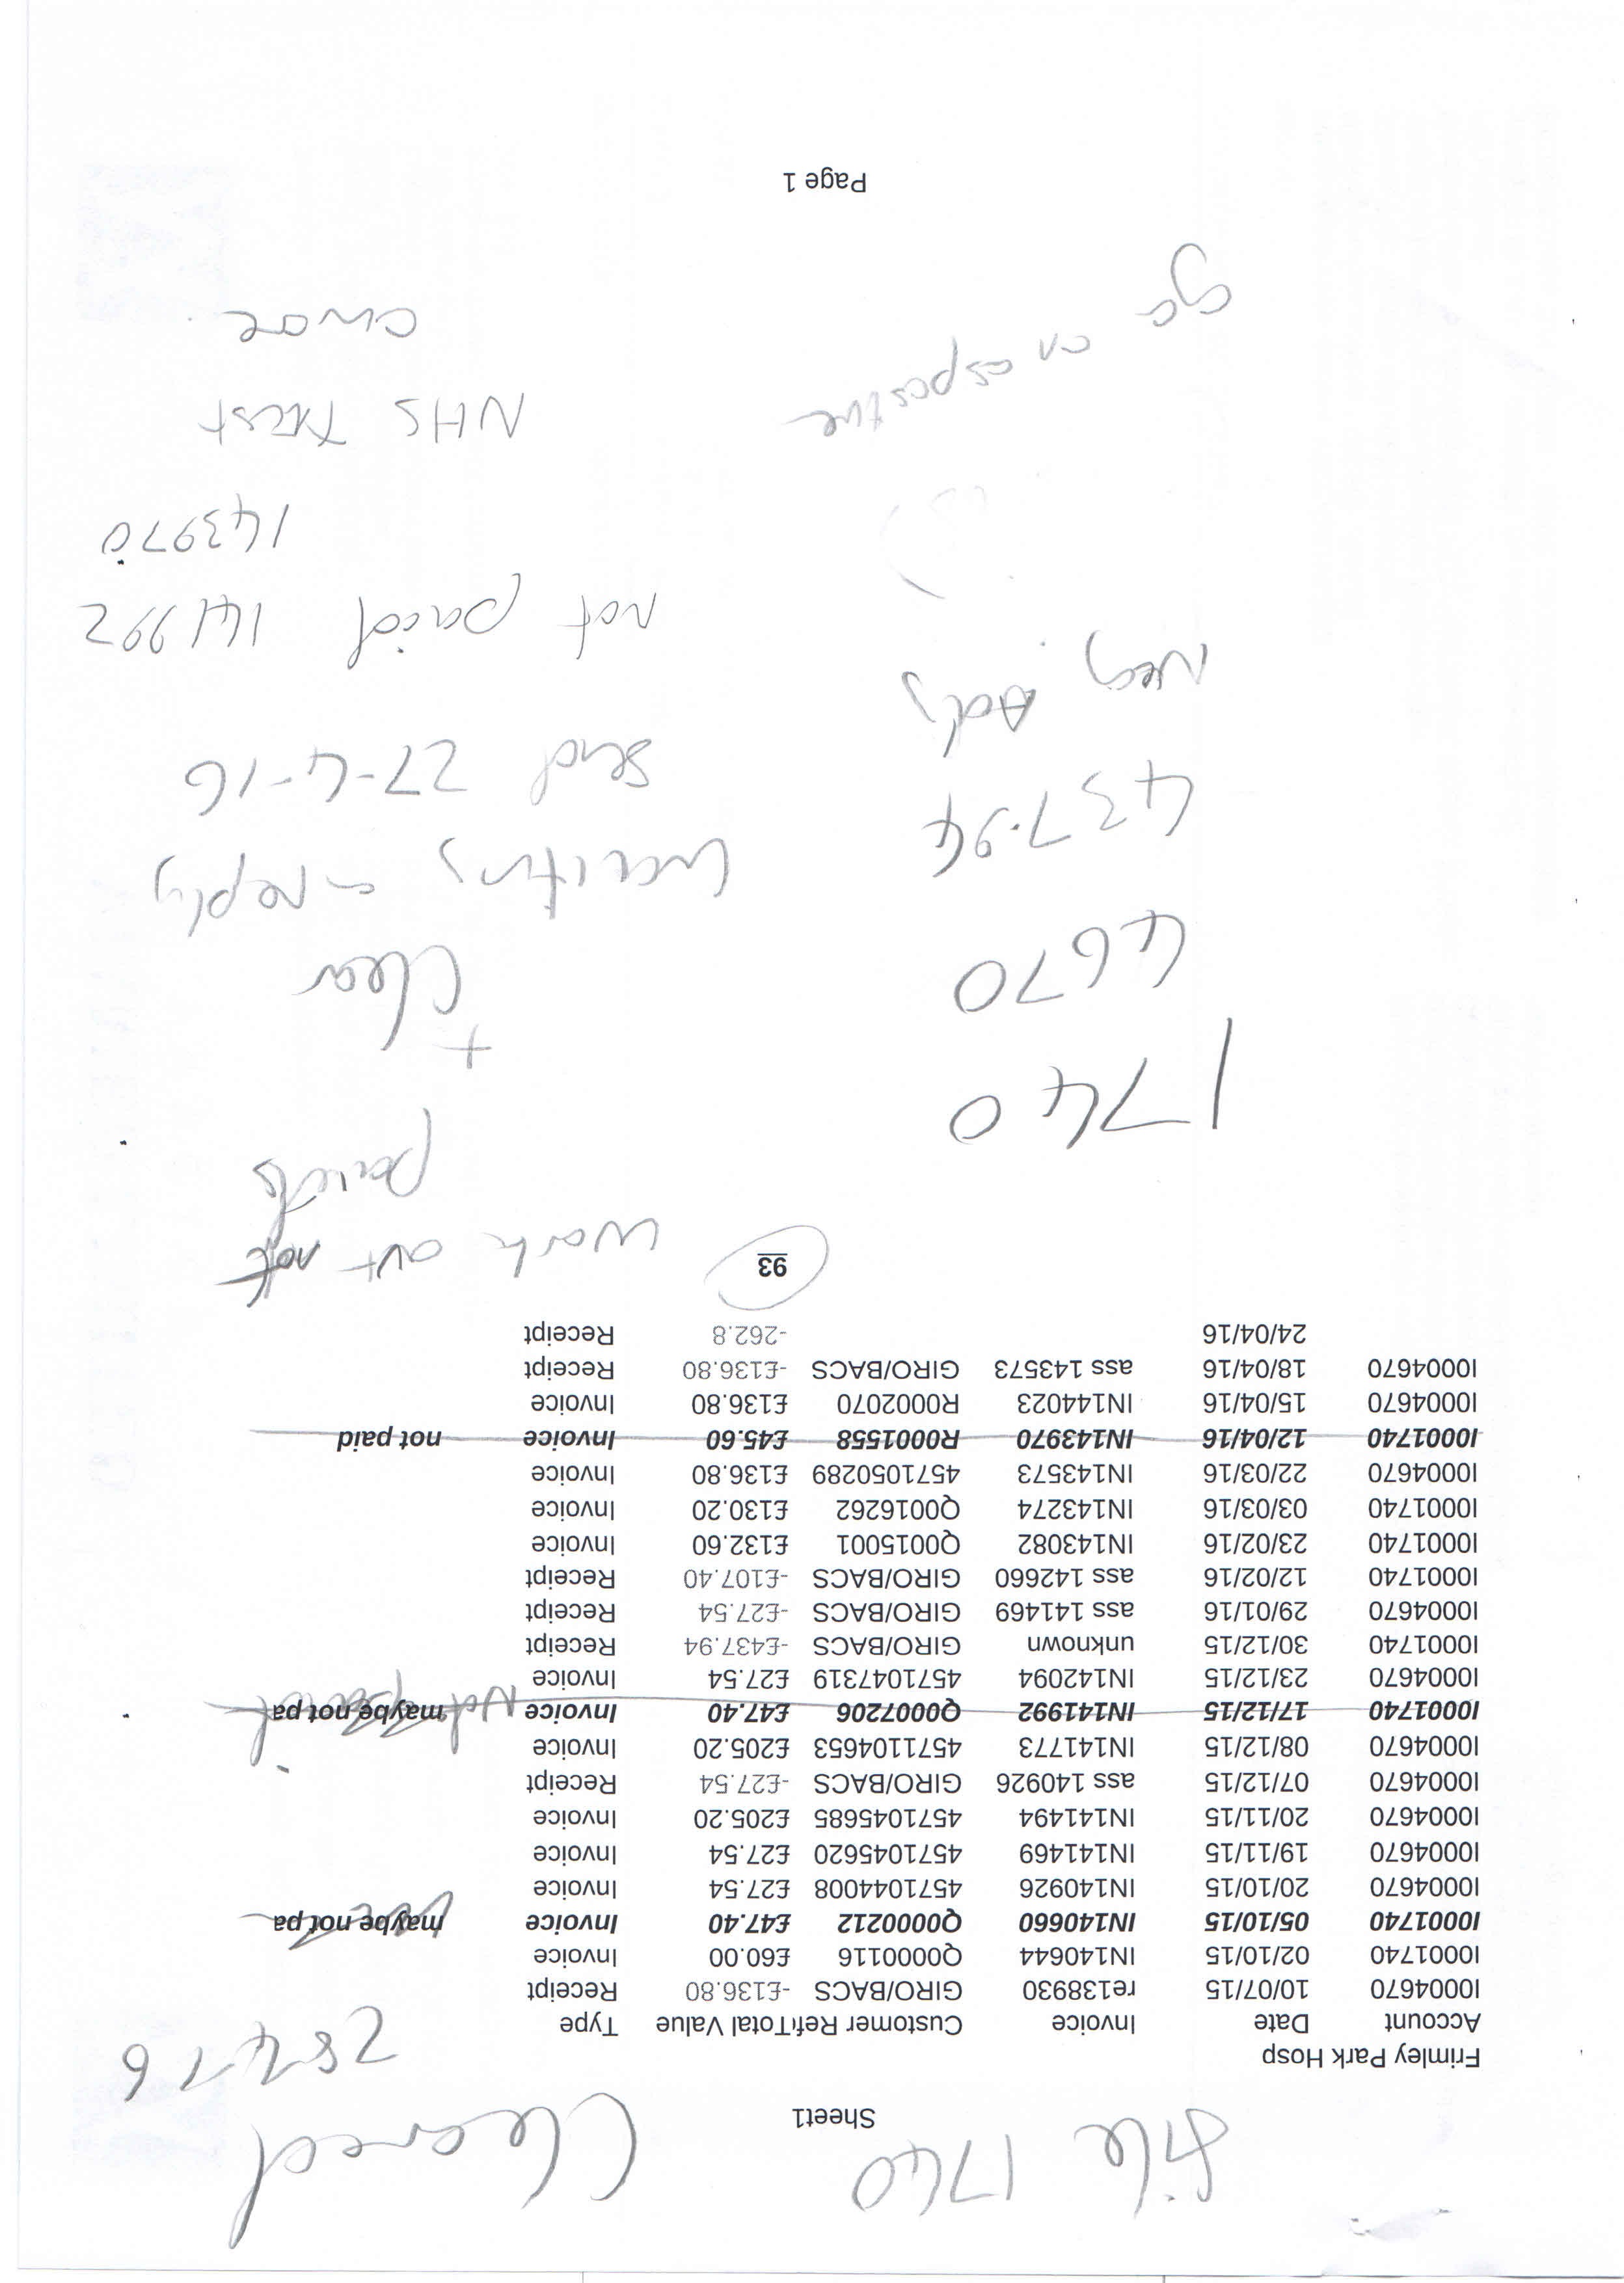 file 1740
Cleared
Sheet1
28-4-16
Frimley Park Hosp
Account Date Invoice Customer Ref Total Value Type
I0004670 10/07/15 re138930 GIRO/BACS -£136.80 Receipt
I0001740 02/10/15 IN140644 Q0000116 £60.00 Invoice
I0001740 05/10/15 IN140660 Q0000212 £47.40 Invoice maybe not pa
I0004670 20/10/15 IN140926 4571044008 £27.54 Invoice
I0004670 19/11/15 IN141469 4571045620 £27.54 Invoice
I0004670 20/11/15 IN141494 4571045685 £205.20 Invoice
I0004670 07/12/15 ass 140926 GIRO/BACS -£27.54 Receipt
I0004670 08/12/15 IN141773 4571104653 £205.20 Invoice
I0001740 17/12/15 IN141992 Q0007206 £47.40 Invoice Not paid maybe not pa
I0004670 23/12/15 IN142094 4571047319 £27.54 Invoice
I0001740 30/12/15 unknown GIRO/BACS -£437.94 Receipt
I0004670 29/01/16 ass 141469 GIRO/BACS -£27.54 Receipt
I0001740 12/02/16 ass 142660 GIRO/BACS -£107.40 Receipt
I0001740 23/02/16 IN143082 Q0015001 £132.60 Invoice
I0001740 03/03/16 IN143274 Q0016262 £130.20 Invoice
I0004670 22/03/16 IN143573 4571050289 £136.80 Invoice
I0001740 12/04/16 IN143970 R0001558 £45.60 Invoice not paid
I0004670 15/04/16 IN144023 R0002070 £136.80 Invoice
I0004670 18/04/16 ass 143573 GIRO/BACS -£136.80 Receipt
24/04/16 -262.8 Receipt
93
work out not
paids
+
Clear
1740
4670
437.94
Neg Adj
waiting a reply
send 27-4-16
not paid 141992
143970
NHS Trust
go on as positive
Page 1